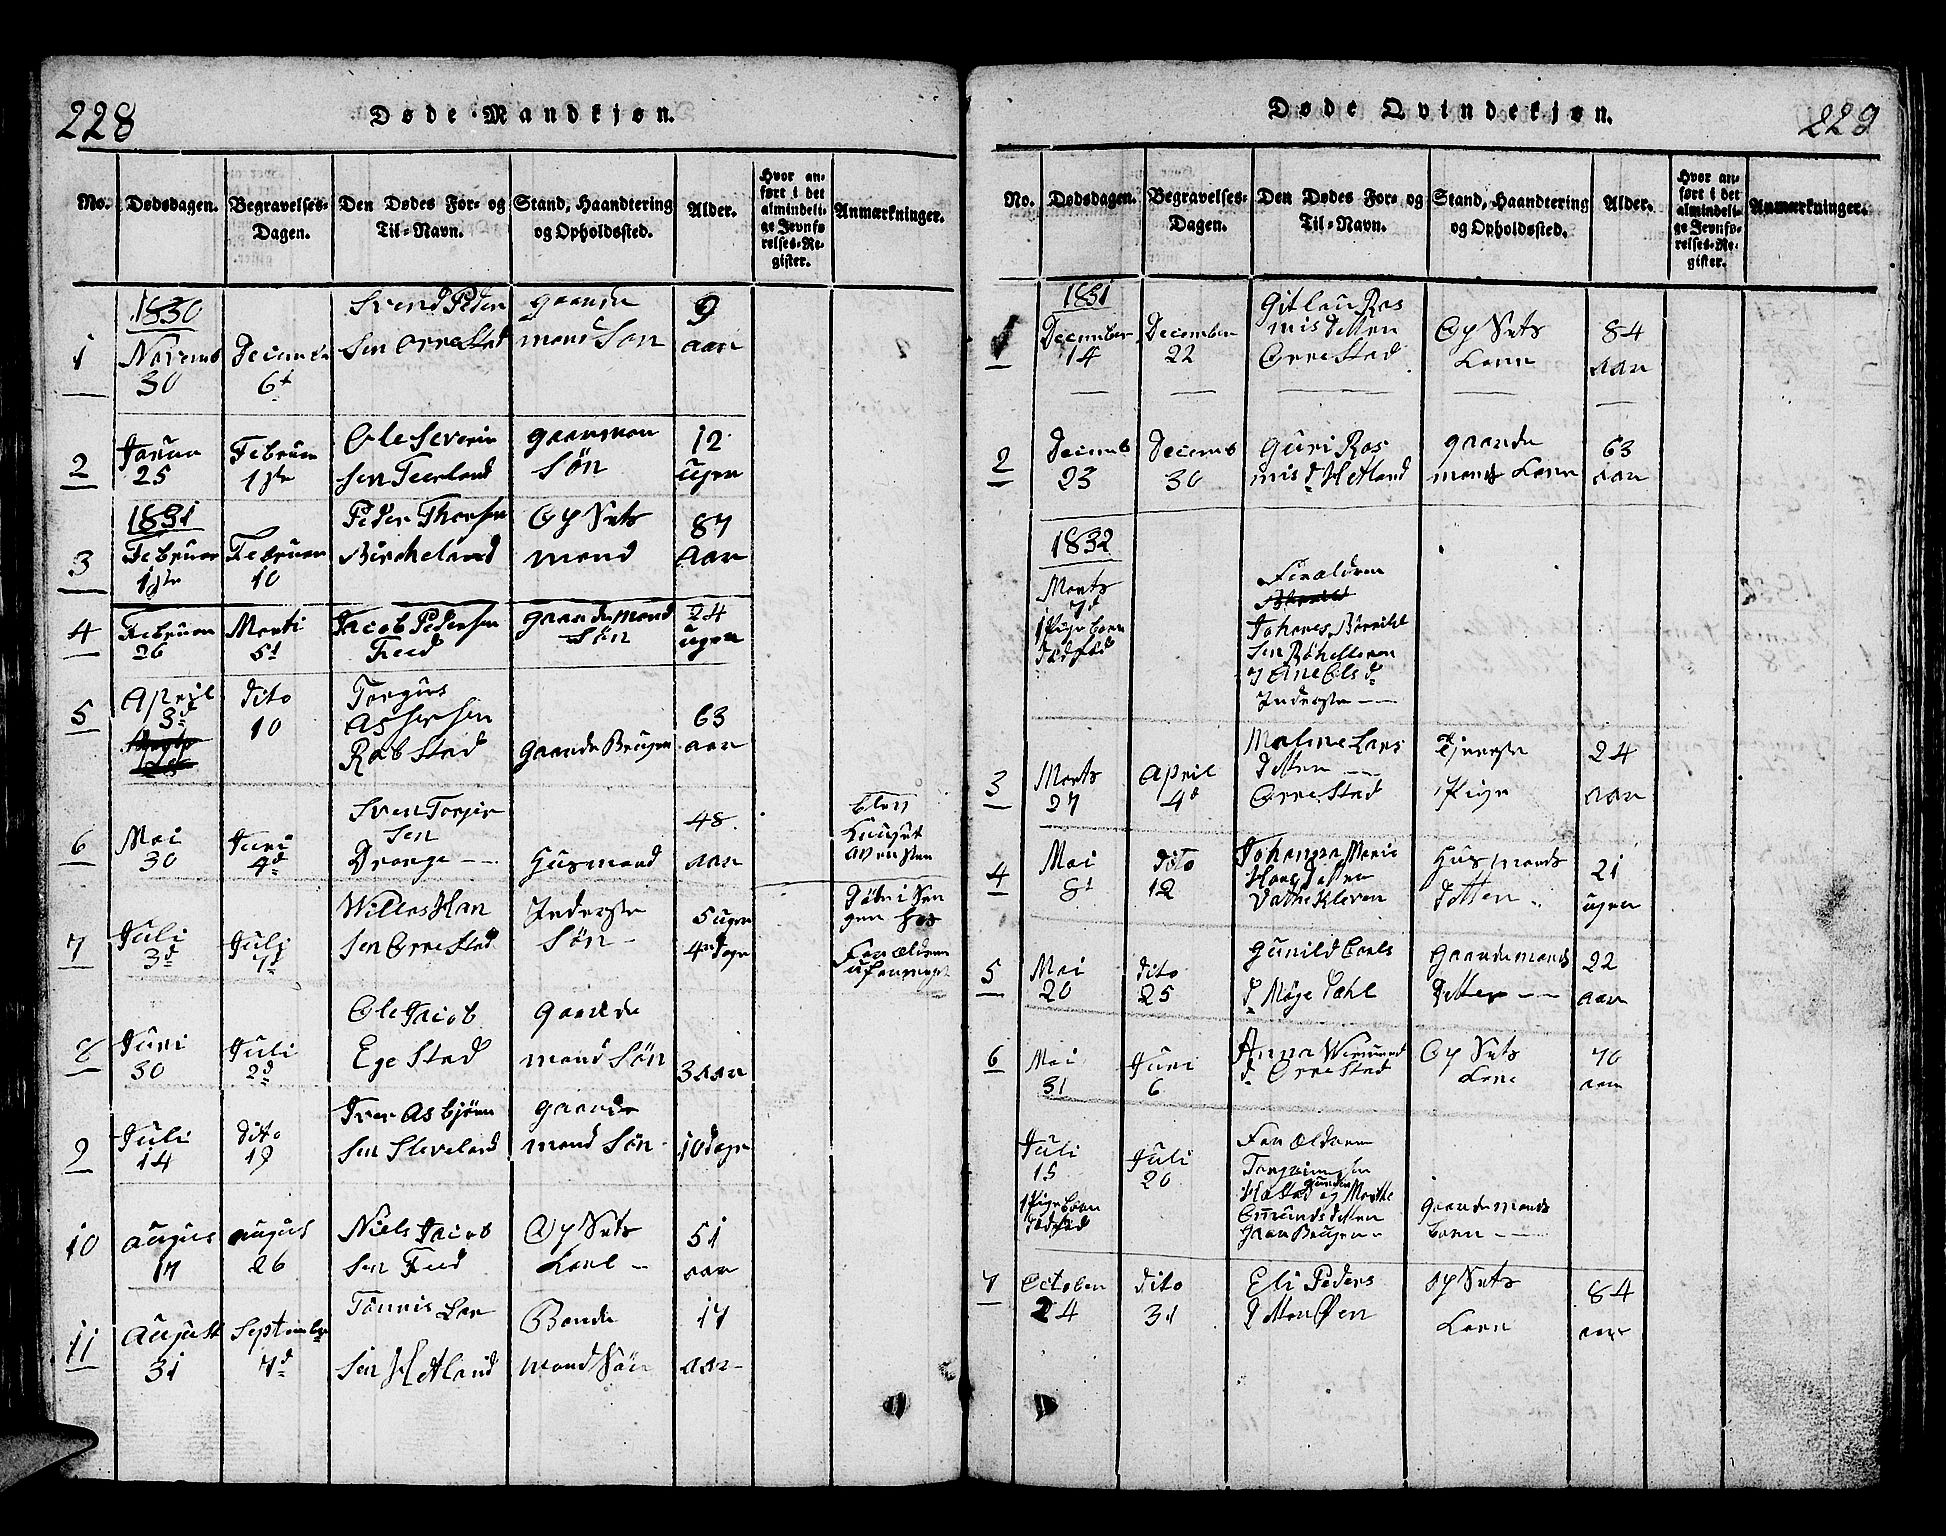 228
Døde Mandkjøn.
No.
Dødsdagen.
Begravelses-
Dagen.
Den Dødes For- og
Til-Navn.
Stand, Haandtering
og Opholdssted.
Alder.
Hvor an-
ført i det
almindeli-
ge Jevnfø-
relses-Re-
gister.
Anmærkninger.
1
1830
Novemb
30
December
6t
Svend Peder
Sen Orrestad
gaarde
mand Søn
9
aar
2
Januar
25
Februar
1ste
Ole Severin
Sen Feerland
gaarman
Søn
12
uger
1831
3
Februar
1ste
Februar
10
Peder Thorsen
Birckeland
Op Sets
mand
87
aar
4
Februar
26
Marti
5t
Jacob Pedersen
Feed
gaardemand
Søn
24
uger
5
April
3d
dito
10
Torgus
Assersen
Rabstad
gaarde Bruger
63
aar
6
Mai
30
Juni
4d
Sven Torjer
Sen
Drange
Husmand
48
aar
blev
knuset
av en sten
7
Juli
3d
Juli
7d
Willas Han
Sen Orrestad
Inderste
Søn
5 uger
4 dage
Døde i Sen
gen hos
Foræeldren
8
Juni
30
Juli
2d
Ole Jacob
Egestad
Gaarde
mand Søn
3 aar
9
Juli
14
dito
19
Iver Asbjörn
Sen Sleveland
gaarde
mand Søn
10 dage
10
august
17
august
26
Niels Jacob
Sen Feed
Op Sets
Karl
51
aar
11
august
31
September
7d
Tönnis Lar
Sen Hetland
Bonde
mand Søn
17
aar
Døde Qvindekjøn.
229
No.
Dødsdagen.
Begravelses-
Dagen.
Den Dødes For- og
Til-Navn.
Stand, Haandtering
og Opholdssted.
Alder.
Hvor an-
ført i det
almindeli-
ge Jevnfø-
relses-Re-
gister.
Anmærkninger.
1831
1
December
14
December
22
Gitlau Ras
misdatter
Orrestad
Op Sets
Kone
84
aar
2
Decemb
23
Decemb
30
Guri Ras
mis d Hetland
gaarde
mands Kone
63
aar
1832
Marts
7d
1 Pigebarn
dødfød
Foræeldren
Inderste
3
Marts
27
April
4d
Maline Lars
Datter
Orrestad
Tjeneste
Pige
24
aar
4
Mai
8t
dito
12
Johanna Marie
Hans datter
Husmands
datter
21
uger
5
Mai
20
dito
25
Gunild Carls
d. Møgedahl
gaardemands
Datter
22
aar
6
Mai
31
Juni
6
Anna
d. Orrestad
Op Sets
Kone
70
aar
Juli
15
1 Pigebarn
dødfød
Juli
20
Foræeldren
og Marthe
Omundsdatter
gaar Bruger
gaardemands
barn
7
October
24
dito
31
Eli Peders
datter Øen
op Sets
Kone
84
aar